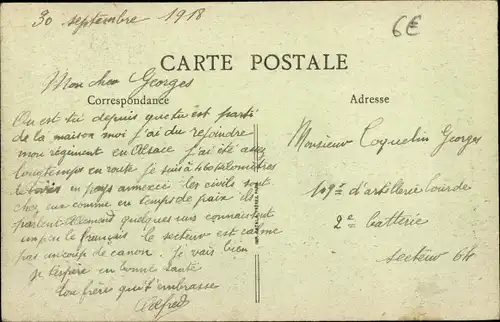 30 septembre 1918
6€
CARTE POSTALE
Mon cher Georges
Correspondance
Ou est tu depuis que tu est parti
de la maison moi j'ai du rejoindre
mon régiment en Alsace j'ai été assez
longtemps en route je suis à 460 kilomètres
en pays annexer les civils sont
chez eux comme en temps de paix ils
parlent Allemand quelques uns connaissent
un peu le français le secteur est calme
pas un coup de canon je vais bien
je t'espère en bonne santé
ton frère qui t'embrasse
Alfred
Adresse
Monsieur Coquelin Georges
109e d'artillerie lourde
2e batterie
secteur 64